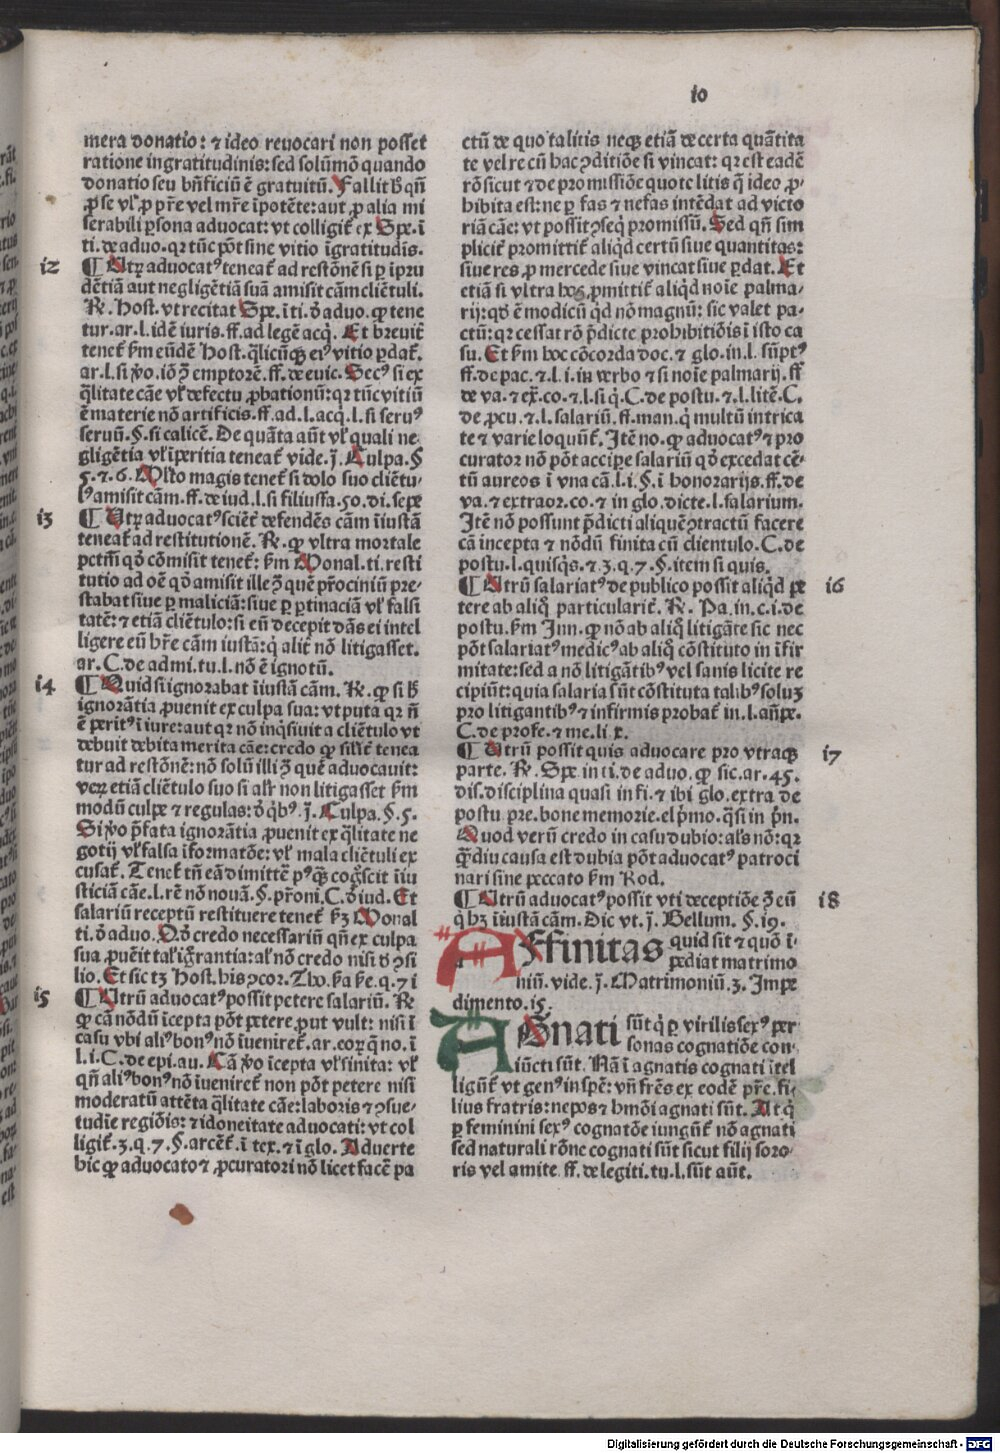 io
mera donatio: ⁊ ideo reuocari non posset
ratione ingratitudinis: sed solũmõ quando
donatio seu bñficiũ ē gratuitũ. Fallit ħ qñ
ꝓ se vł ꝓ pr̃e vel mr̃e ĩpotēte: aut ꝓ alia mi
serabili ꝑsona aduocat: vt colligit̃ ex Spe. ĩ
ti. de aduo. qꝛ tũc põt sine vitio ĩgratitudĩs.
i2
¶ Utꝝ aduocatꝰ teneat̃ ad restõnē si ꝑ ipru
dētiã aut negligētiã suã amisit cãm cliētuli.
R̃. Host. vt recitat Spe. ĩ ti. ð aduo. ꝙ tene
tur. ar. l. idē iuris. ff. ad legē acq̃. Et breuit̃
tenet̃ ẜm eũdē Host. q̃licũqꝫ eiꝰ vitio ꝑdat̃.
ar. l. si ṽo. iõ ꝯ̃ emptorē. ff. de euic. Secꝰ si ex
q̃litate cãe vł defectu ꝓbationũ: qꝛ tũc vitiũ
ē materie nõ artificis. ff. ad. l. acq̃. l. si seruꝰ
seruũ. §. si calicē. De quãta aũt vł quali ne
gligētia vł ĩperitia teneat̃ vide. j̃. Culpa. §
5. ⁊. 6. Mlto magis tenet̃ si dolo suo cliētu-
lꝰ amisit cãm. ff. de iud. l. si filiusfa. 50. di. sepe
i3
¶ Utꝝ aduocatꝰ sciēt̃ defendēs cãm ĩiustã
teneat̃ ad restitutionē. R̃. ꝙ vltra mortale
pctm̃ qð cõmisit tenet̃: ẜm Monal. ti. resti
tutio ad oē qð amisit ille ꝯ̃ quē pr̃ociniũ pre-
stabat siue ꝑ maliciã: siue ꝑ ꝑtinaciã vł falsi
tatē: ⁊ etiã cliētulo: si eũ decepit dãs ei intel
ligere eũ hr̃e cãm iustã: q̃ alit̃ nõ litigasset.
ar. C. de admi. tu. l. nõ ē ignotũ.
i4
¶ Quid si ignorabat ĩiustã cãm. R̃. ꝙ si ħ
ignorãtia ꝓuenit ex culpa sua: vt puta qꝛ ñ
ē peritꝰ ĩ iure: aut qꝛ nõ inq̃siuit a cliētulo vt
debuit debita merita cãe: credo ꝙ silr̃ tenea
tur ad restõnē: nõ solũ illi ꝯ̃ quē aduocauit:
veꝝ etiã cliētulo suo si alr̃ non litigasset ẜm
modũ culpe ⁊ regulas: ð q̃bꝰ. j̃. Culpa. §. 5.
Si ṽo p̃fata ignorãtia ꝓuenit ex q̃litate ne
gotij vł falsa ĩformatõe: vł mala cliētuli ex
cusat̃. Tenet̃ tñ eã dimittē pꝰqꝫ cog̃scit ĩiu
sticiã cãe. l. rē nõ nouã. §. pr̃oni. C. ð iud. Et
salariũ receptũ restituere tenet̃ ẜꝫ Monal
ti. ð aduo. Qð credo necessariũ qñ ex culpa
sua ꝓuēit tał ig̃rantia: ał nõ credo nisi ð ꝯsi
lio. Et sic tꝫ Host. his ꝯcor. Tho. ẜa ẜe. q. 7i
i5
¶ Utrũ aduocatꝰ possit petere salariũ. R̃
ꝙ cã nõdũ ĩcepta põt petere ꝓut vult: nisi ĩ
casu vbi aliꝰ bonꝰ nõ ĩueniret̃. ar. coꝝ q̃ no. ĩ
l. i. C. de epi. au. Cã ṽo ĩcepta vł finita: vł
qñ aliꝰ bonꝰ nõ ĩueniret̃ non põt petere nisi
moderatũ attēta q̃litate cãe: laboris ⁊ ꝯsue-
tudĩe regiõis: ⁊ idoneitate aduocati: vt col
ligit̃. 3. q. 7. §. arcēt̃. ĩ tex. ⁊ ĩ glo. Aduerte
hic ꝙ aduocato ⁊ ꝓcuratori nõ licet facē pa
ctũ de quo talitis neqꝫ etiã de certa quãtita
te vel re cũ hac ꝯditiõe si vincat: qꝛ est eadē
rõ sicut ⁊ de promissiõe quote litis q̃ ideo ꝓ-
hibita est: ne ꝑ fas ⁊ nefas intēdat ad victo
riã cãe: vt possit ꝯseq̃ promissũ. Sed qñ sim
plicit̃ promittit̃ aliq̃d certũ siue quantitas:
siue res, ꝓ mercede siue vincat siue ꝑdat. Et
etiã si vltra hoc, ꝓmittit̃ aliq̃d noĩe palma-
rij: qð ē modicũ q̃d nõ magnũ: sic valet pa-
ctũ: qꝛ cessat rõ p̃dicte prohibitiõis ĩ isto ca
su. Et ẜm hoc cõcorda doc. ⁊ glo. in. l. sũptꝰ
ff. de pac. ⁊. l. i. in verbo ⁊ si noĩe palmarij. ff
de va. ⁊ ex̃. co. ⁊. l. si q̃. C. de postu. ⁊. l. litē. C.
de ꝓcu. ⁊ l. salariũ. ff. man. q̃ multũ intrica
te ⁊ varie loqunt̃. Itē no. ꝙ aduocatꝰ ⁊ pro
curator nõ põt accipe salariũ qð excedat cē-
tũ aureos ĩ vna cã. l. i. §. ĩ honorarijs. ff. de
va. ⁊ extraor. co. ⁊ in glo. dicte. l. salarium.
Itē nõ possunt p̃dicti aliquē ꝯtractũ facere
cã incepta ⁊ nõdũ finita cũ clientulo. C. de
postu. l. quisq̃s. ⁊. 3. q. 7. §. item si quis.
¶ Utrũ salariatꝰ de publico possit aliq̃d pe
i6
tere ab aliq̃ particularit̃. R̃. Pa. in. c. i. de
postu. ẜm Inn. ꝙ nõ ab aliq̃ litigãte sic nec
põt salariatꝰ medicꝰ ab aliq̃ cõstituto in ĩfir
mitate: sed a nõ litigãtibꝰ vel sanis licite re
cipiũt: quia salaria sũt cõstituta talibꝰ soluꝫ
pro litigantibꝰ ⁊ infirmis probat̃ in. l. añpe.
C. de profe. ⁊ me. li x.
¶ Utrũ possit quis aduocare pro vtraqꝫ
i7
parte. R̃. Spe in ti. de aduo. ꝙ sic. ar. 45.
dis. disciplina quasi in fi. ⁊ ibi glo. extra de
postu. pre. bone memorie. el p̃mo. q̃si in pñ.
Quod verũ credo in casu dubio: als̃ nõ: qꝛ
q̃diu causa est dubia põt aduocatꝰ patroci
nari sine peccato ẜm Rod.
¶ Utrũ aduocatꝰ possit vti deceptiõe ꝯ̃ eũ
i8
q̃ hꝫ ĩiustã cãm. Dic vt. j̃. Bellum. §. i9.
AFfinitas quid sit ⁊ quõ ĩ-
pediat matrimo
niũ. vide. j̃. Matrimoniũ. 3. Impe
dimento. i5.
AGnati sũt q̃ ꝑ virilis sexꝰ per
sonas cognatiõe con-
iũcti sũt. Nã ĩ agnatis cognati ĩtel
ligũt̃ vt genꝰ in spē: vñ fr̃es ex eodē pr̃e. fi-
lius fratris: nepos ⁊ hmõi agnati sũt. At q̃
ꝑ feminini sexꝰ cognatõe iungũt̃ nõ agnati
sed naturali rõne cognati sũt sicut filij soro-
ris vel amite. ff. de legiti. tu. l. sũt aũt.
Digitalisierung gefördert durch die Deutsche Forschungsgemeinschaft - DFG